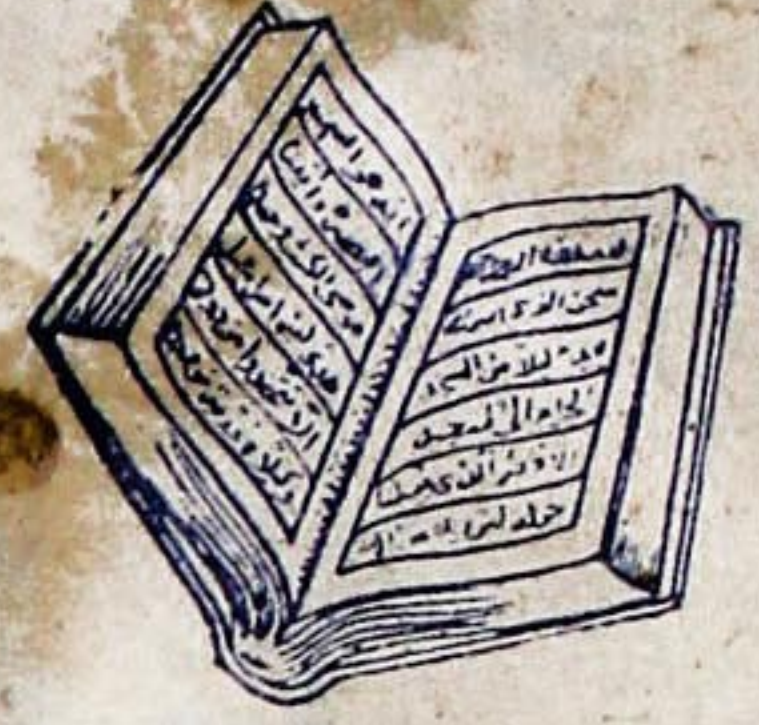 سبحن الذي اسرى
بعبده ليلا من المسجد
الحرام الى المسجد
الاقصا الذي
حوله لنريه من
انه هو السميع
البصير واتينا
موسى الكتب وجعلنه
هدى لبني اسرائيل
الا تتخذوا من دوني
وكيلا ذرية من